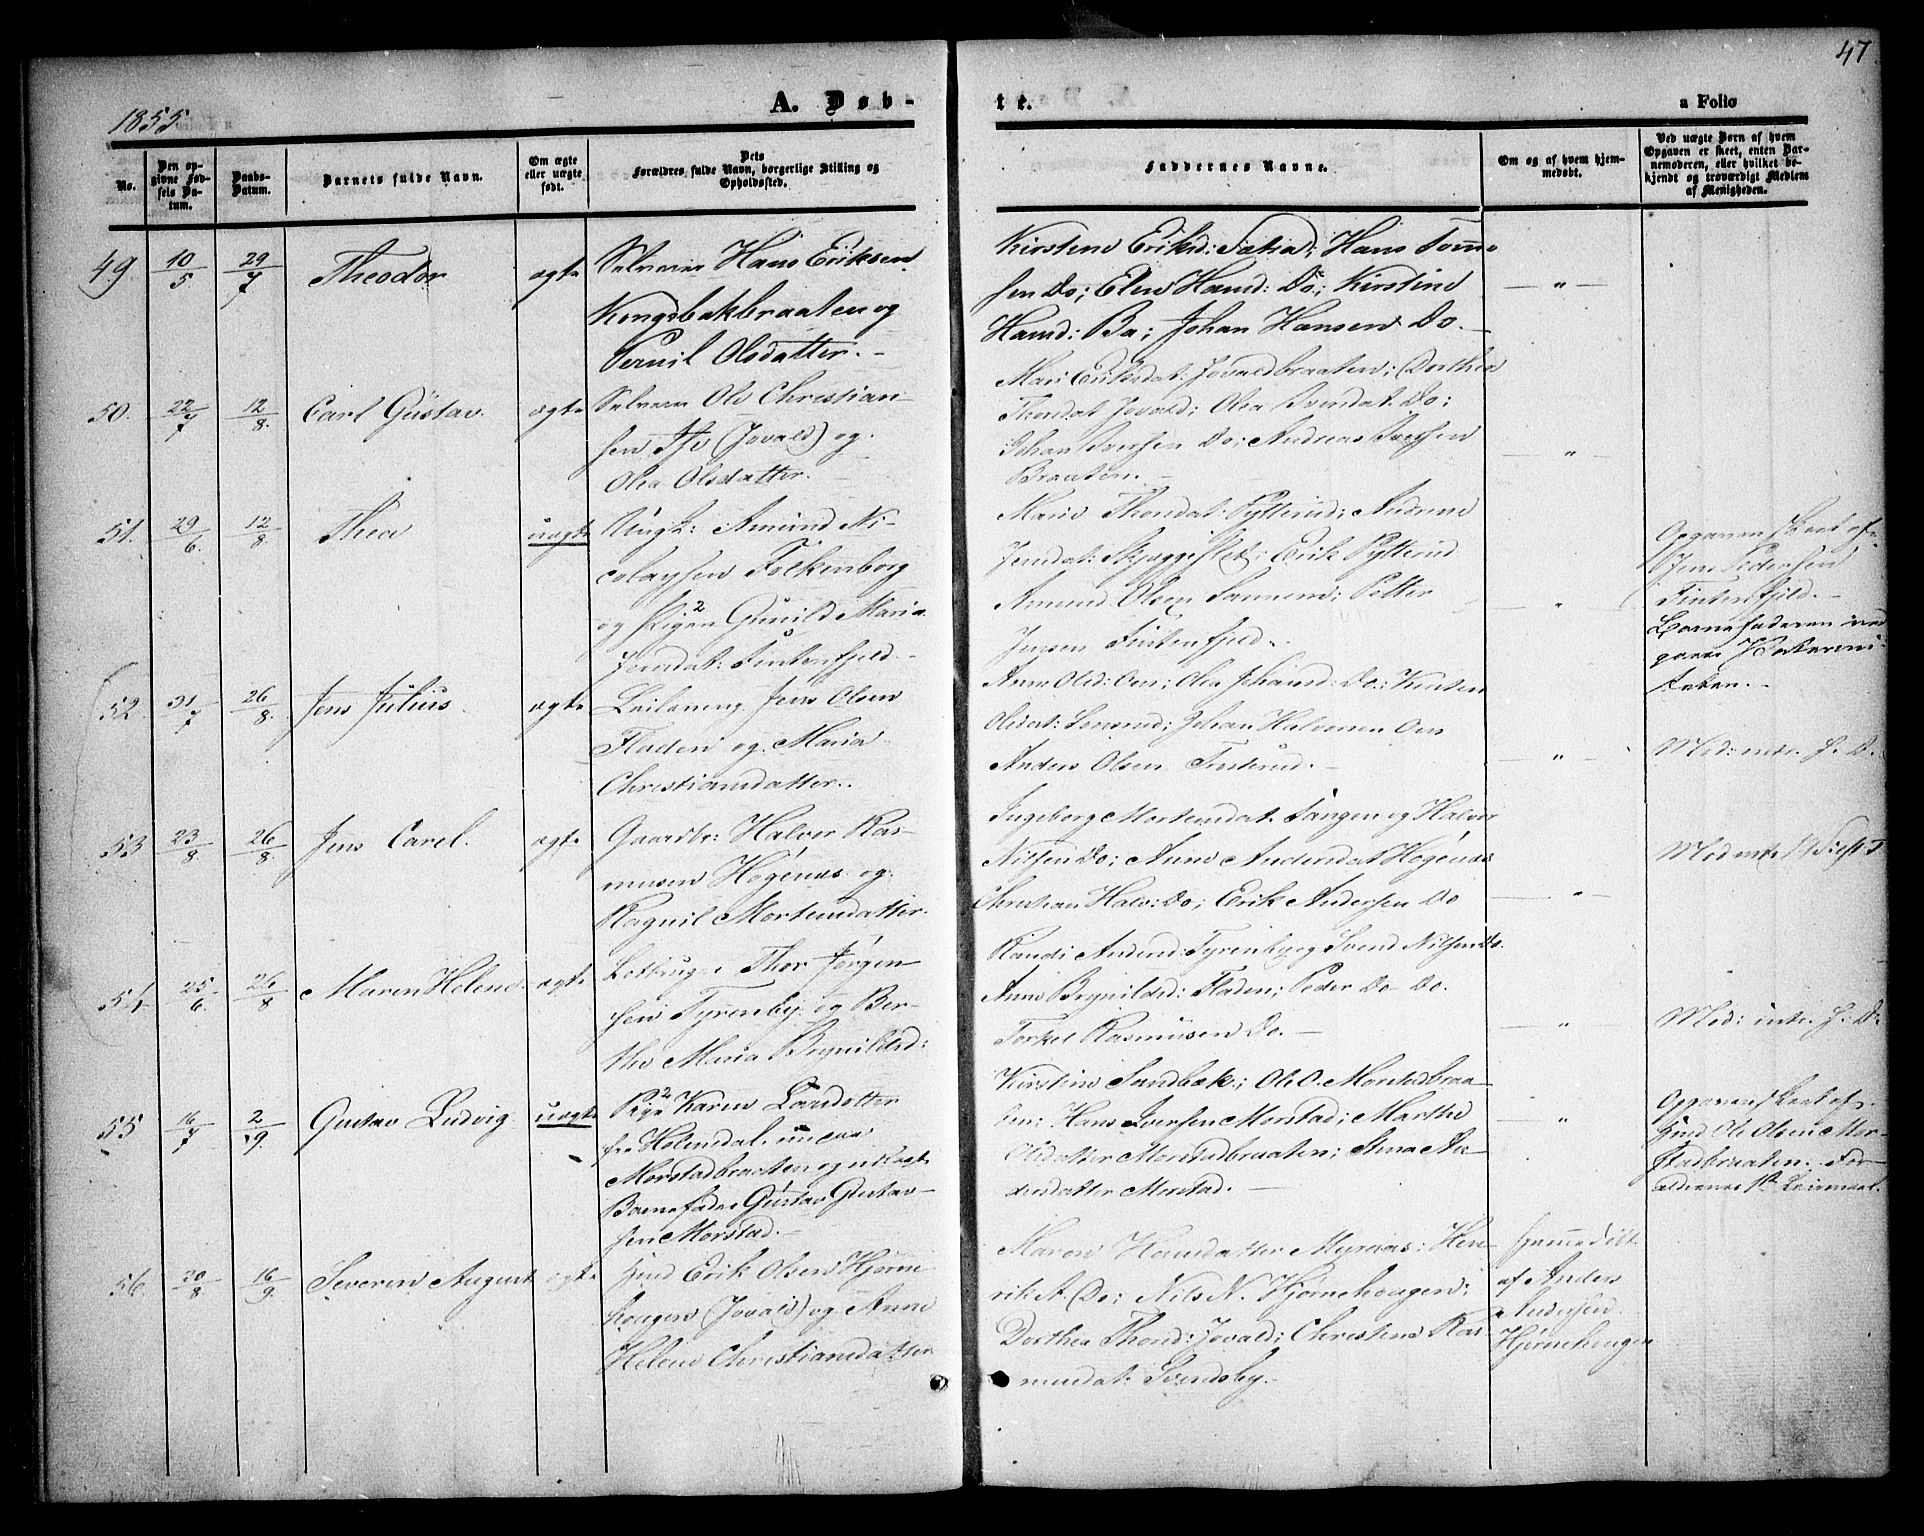 47
1855
A. Døb-
te.
a Folio
No.
Den op-
givne Fød-
sels Da-
tum.
Daabs-
Datum.
Barnets fulde Navn.
Om ægte
eller uægte
født.
Dets
Forældres fulde Navn, borgerlige Stilling og
Opholdssted.
Faddernes Navne.
Om og af hvem hjem-
medøbt.
Ved uægte Børn af hvem
Opgaven er skeet, enten Bar-
nemoderen, eller hvilket be-
kjendt og troværdigt Medlem
af Menigheden.
49. 10/5 29/7 Theodor ægte
Selveier Hans Eriksen
Kongsbakbraaten og
Pernil Olsdatter.
Kirstine Eriksd: Hans
sen Do; Elen Hansd: Do; Kirstine
Hansd: Ba; Johan Hansen Do.
50. 22/7 12/8. Carl Gustav. ægte
Selveier Ole Christian-
sen (Jovald) og
Olea Olsdatter.
Mari Eriksdat: Jovaldbraaten; Dorthea
Thorsdat Jovald; Olea Svendsdat: Do;
Johan Iversen Do; Andreas Iversen
Braaten.
51. 29/6. 12/8. Thea uægte
Ungk: Amund Ni-
colaysen Folkenborg
og Pigen Gunild Maria
Jensdat: Tintenfjeld.
Maria Thorsdat: Pytterud;
Jensdat: Erik Pytterud
Amund Olsen Petter
Jensen Tintenfjeld.
Opgaven skeet af
Jens Pedersen
Tintenfjeld.
Barnefaderen ved
52. 31/7 26/8. Jens Julius. ægte
Leilænding Jens Olsen
Fladen og Maria
Christiansdatter.
Anne Olsd: Oen; Olea Johansd: Do: Kirsten
Olsdat: Johan Halvorsen Oen
Anders Olsen
Med: intr. S. D.
53 23/8. 26/8. Jens Carel. ægte
Gaardbr: Halvor Ras-
musen Høgenæs og
Ragnil Mortensdatter.
Ingeborg Mortensdat. Tangen og Halvor
Nilsen Do; Anne Andersdat Høgenæs
Christian Halv: Do; Erik Andersen Do
Mod intr. 19 Sept
54. 25/6. 26/8 Maren Helene. ægte
Thor Jørgen-
sen Tyrenby og Ber-
the Maria Brynildsd:
Randi Andersd: Tyrenby og Svend Nilsen Do.
Anne Brynildsd: Fladen; Peder Do Do.
Torkel Rasmusen Do.
Mod: intr. S: D:
55 16/7 2/9. Gustav Ludvig. uægte
Pige Karen Larsdotter
fra Holmedal.
Morstadbraaten og
Barnefader Gustav Gustav-
sen Morstad.
Kirstine Sandbæk; Ole O. Morstadbraa-
ten: Hans Iversen Morstad; Marthe
Olsdatter Morstadbraaten; Anna An-
dersdatter Morstad.
Opgaven skeet af
Hmd Ole Olsen Mor-
stadbraaten. For-
ældrenes 1ste Leiermaal.
56. 30/8 16/9. Severin August ægte
Hmd Erik Olsen Hjørne-
hougen (Jovald) og Anne
Helene Christiansdatter
Maren Hansdatter Myrnæs: Hen-
rik A. Do; Nils N. Hjørnehougen;
Dorthea Thorsd: Jovald; Christine Ras-
musdat: Svendsby.
Hjemmedøbt
af Anders
Andersen
Hjørnehougen